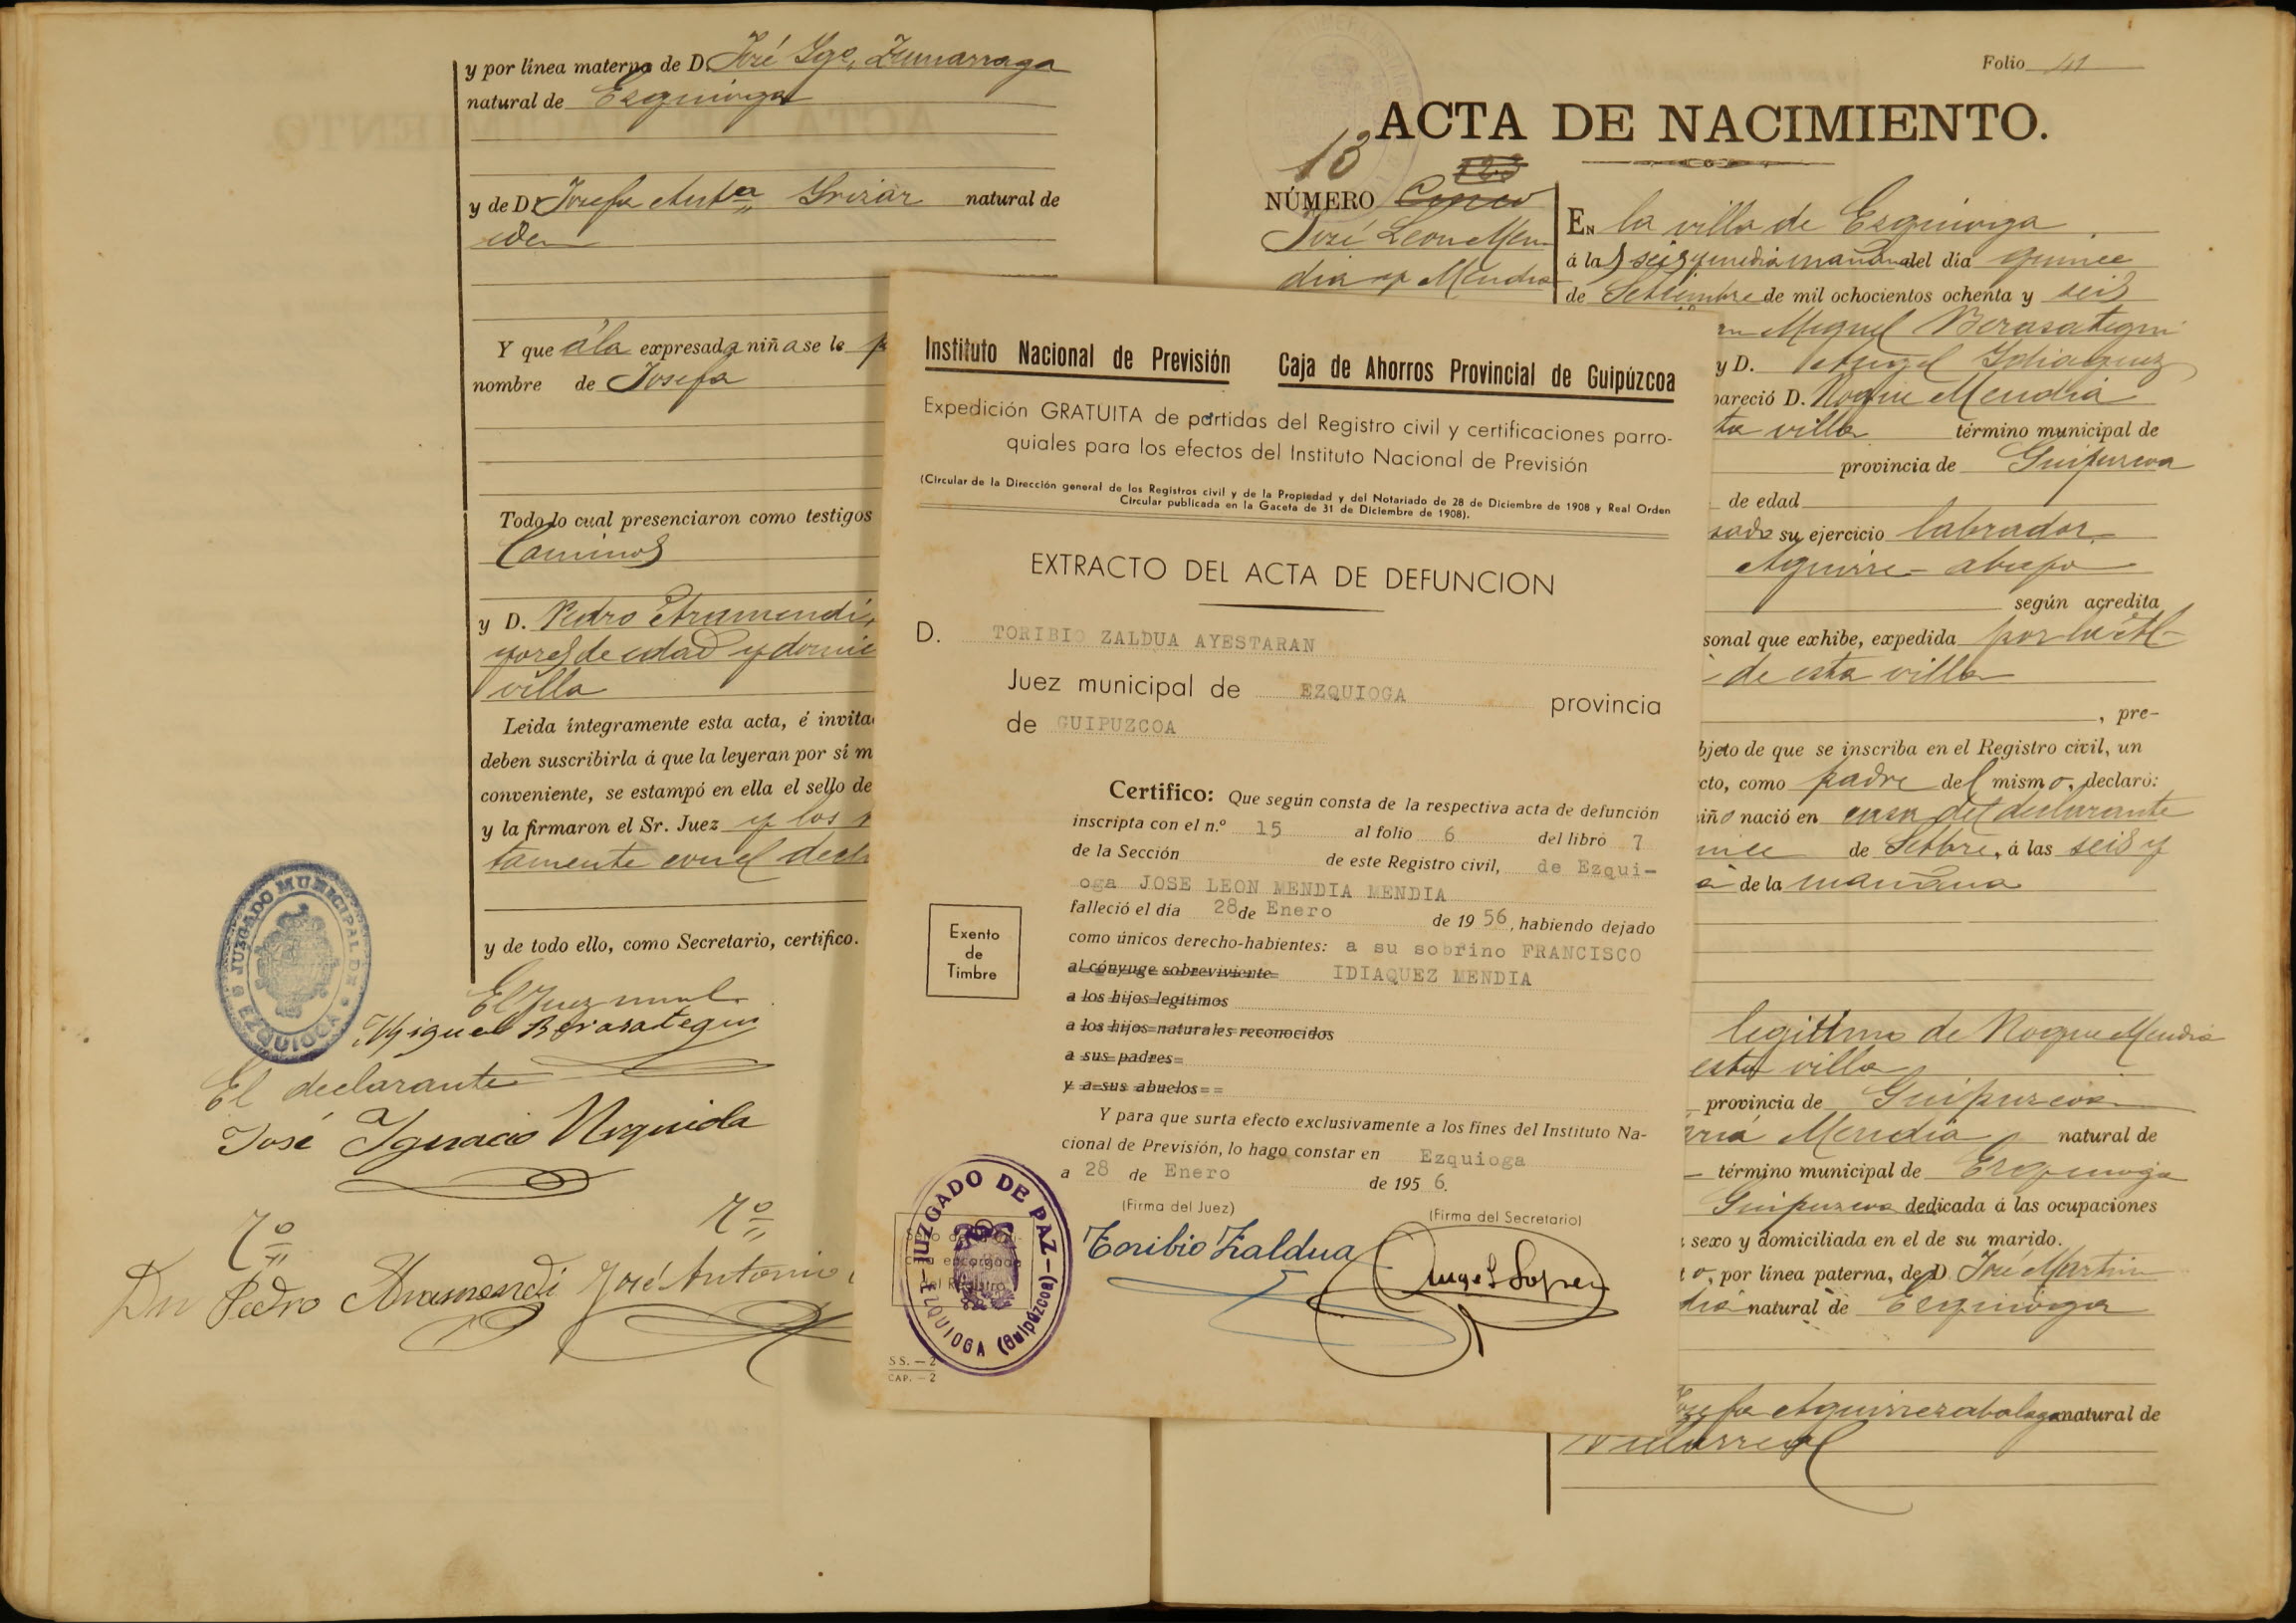 y por línea materna de D. José Igo. Zumarraga
natural de Ezquioga
y de Da Josefa Anta Yrizar natural de
iden
Y que á la expresada niña se le
nombre de Josefa
Todo lo cual presenciaron como testigos
Caminos
y D. Pedro Aramendi,
yores de edad y domic
villa
Leida íntegramente esta acta, é invita
deben suscribirla á que la leyeran por sí m
conveniente, se estampó en ella el sello de
y la firmaron el Sr. Juez y los
tamente con el decla
y de todo ello, como Secretario, certifico.
El Juez munl.
Miguel Berasategui
El declarante
José Ignacio Urquiola
To To
Don Pedro Aramendi José Antonio
JUZGADO MUNICIPAL DE EZQUIOGA
Folio 41
ACTA DE NACIMIENTO.
13
NÚMERO Cinco
José Leon Men-
dia y Mendia
En la villa de Ezquioga
á las seis y media mañana del día quince
de Setiembre de mil ochocientos ochenta y seis
Miguel Berasategui
y D. Angel Idiaquez
pareció D. Roque Mendia
ta villa término municipal de
provincia de Guipuzcoa
de edad
sado su ejercicio labrador
Aguirre-abepo
según acredita
sonal que exhibe, expedida por la Al-
de esta villa
, pre-
bjeto de que se inscriba en el Registro civil, un
cto, como padre del mismo, declaró:
iño nació en casa del declarante
ince de Setbre, á las seis y
a de la mañana
legitimo de Roque Mendia
esta villa
provincia de Guipuzcoa
ria Mendia natural de
término municipal de Ezquioga
Guipuzcoa dedicada á las ocupaciones
sexo y domiciliada en el de su marido.
to, por línea paterna, de D. José Martin
dia natural de Ezquioga
Josefa Aguirrezabalaga natural de
Villarreal
Instituto Nacional de Previsión Caja de Ahorros Provincial de Guipúzcoa
Expedición GRATUITA de partidas del Registro civil y certificaciones parro-
quiales para los efectos del Instituto Nacional de Previsión
(Circular de la Dirección general de los Registros civil y de la Propiedad y del Notariado de 28 de Diciembre de 1908 y Real Orden
Circular publicada en la Gaceta de 31 de Diciembre de 1908).
EXTRACTO DEL ACTA DE DEFUNCION
D. TORIBIO ZALDUA AYESTARAN
Juez municipal de EZQUIOGA provincia
de GUIPUZCOA
Certifico: Que según consta de la respectiva acta de defunción
inscripta con el n.º 15 al folio 6 del libro 7
de la Sección de este Registro civil, de Ezqui-
oga JOSE LEON MENDIA MENDIA
falleció el día 28 de Enero de 19 56, habiendo dejado
como únicos derecho-habientes: a su sobrino FRANCISCO
al cónyuge sobreviviente IDIAQUEZ MENDIA
a los hijos legítimos
a los hijos naturales reconocidos
a sus padres
y a sus abuelos
Exento
de
Timbre
Y para que surta efecto exclusivamente a los fines del Instituto Na-
cional de Previsión, lo hago constar en Ezquioga
a 28 de Enero de 195 6.
(Firma del Juez) (Firma del Secretario)
Toribio Zaldua
Angel Lopez
JUZGADO DE PAZ EZQUIOGA (Guipúzcoa)
SS. - 2
CAP. - 2